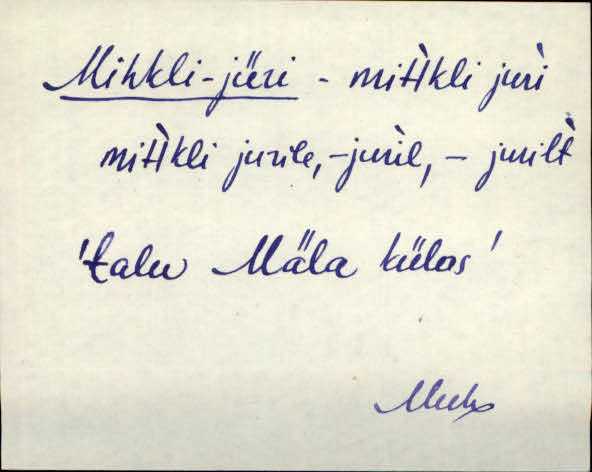 Mihkli-jüri - miHkli jüri
miHkli jürile, -jüril, - jürilt
'talu Mäla külas'
Muhu